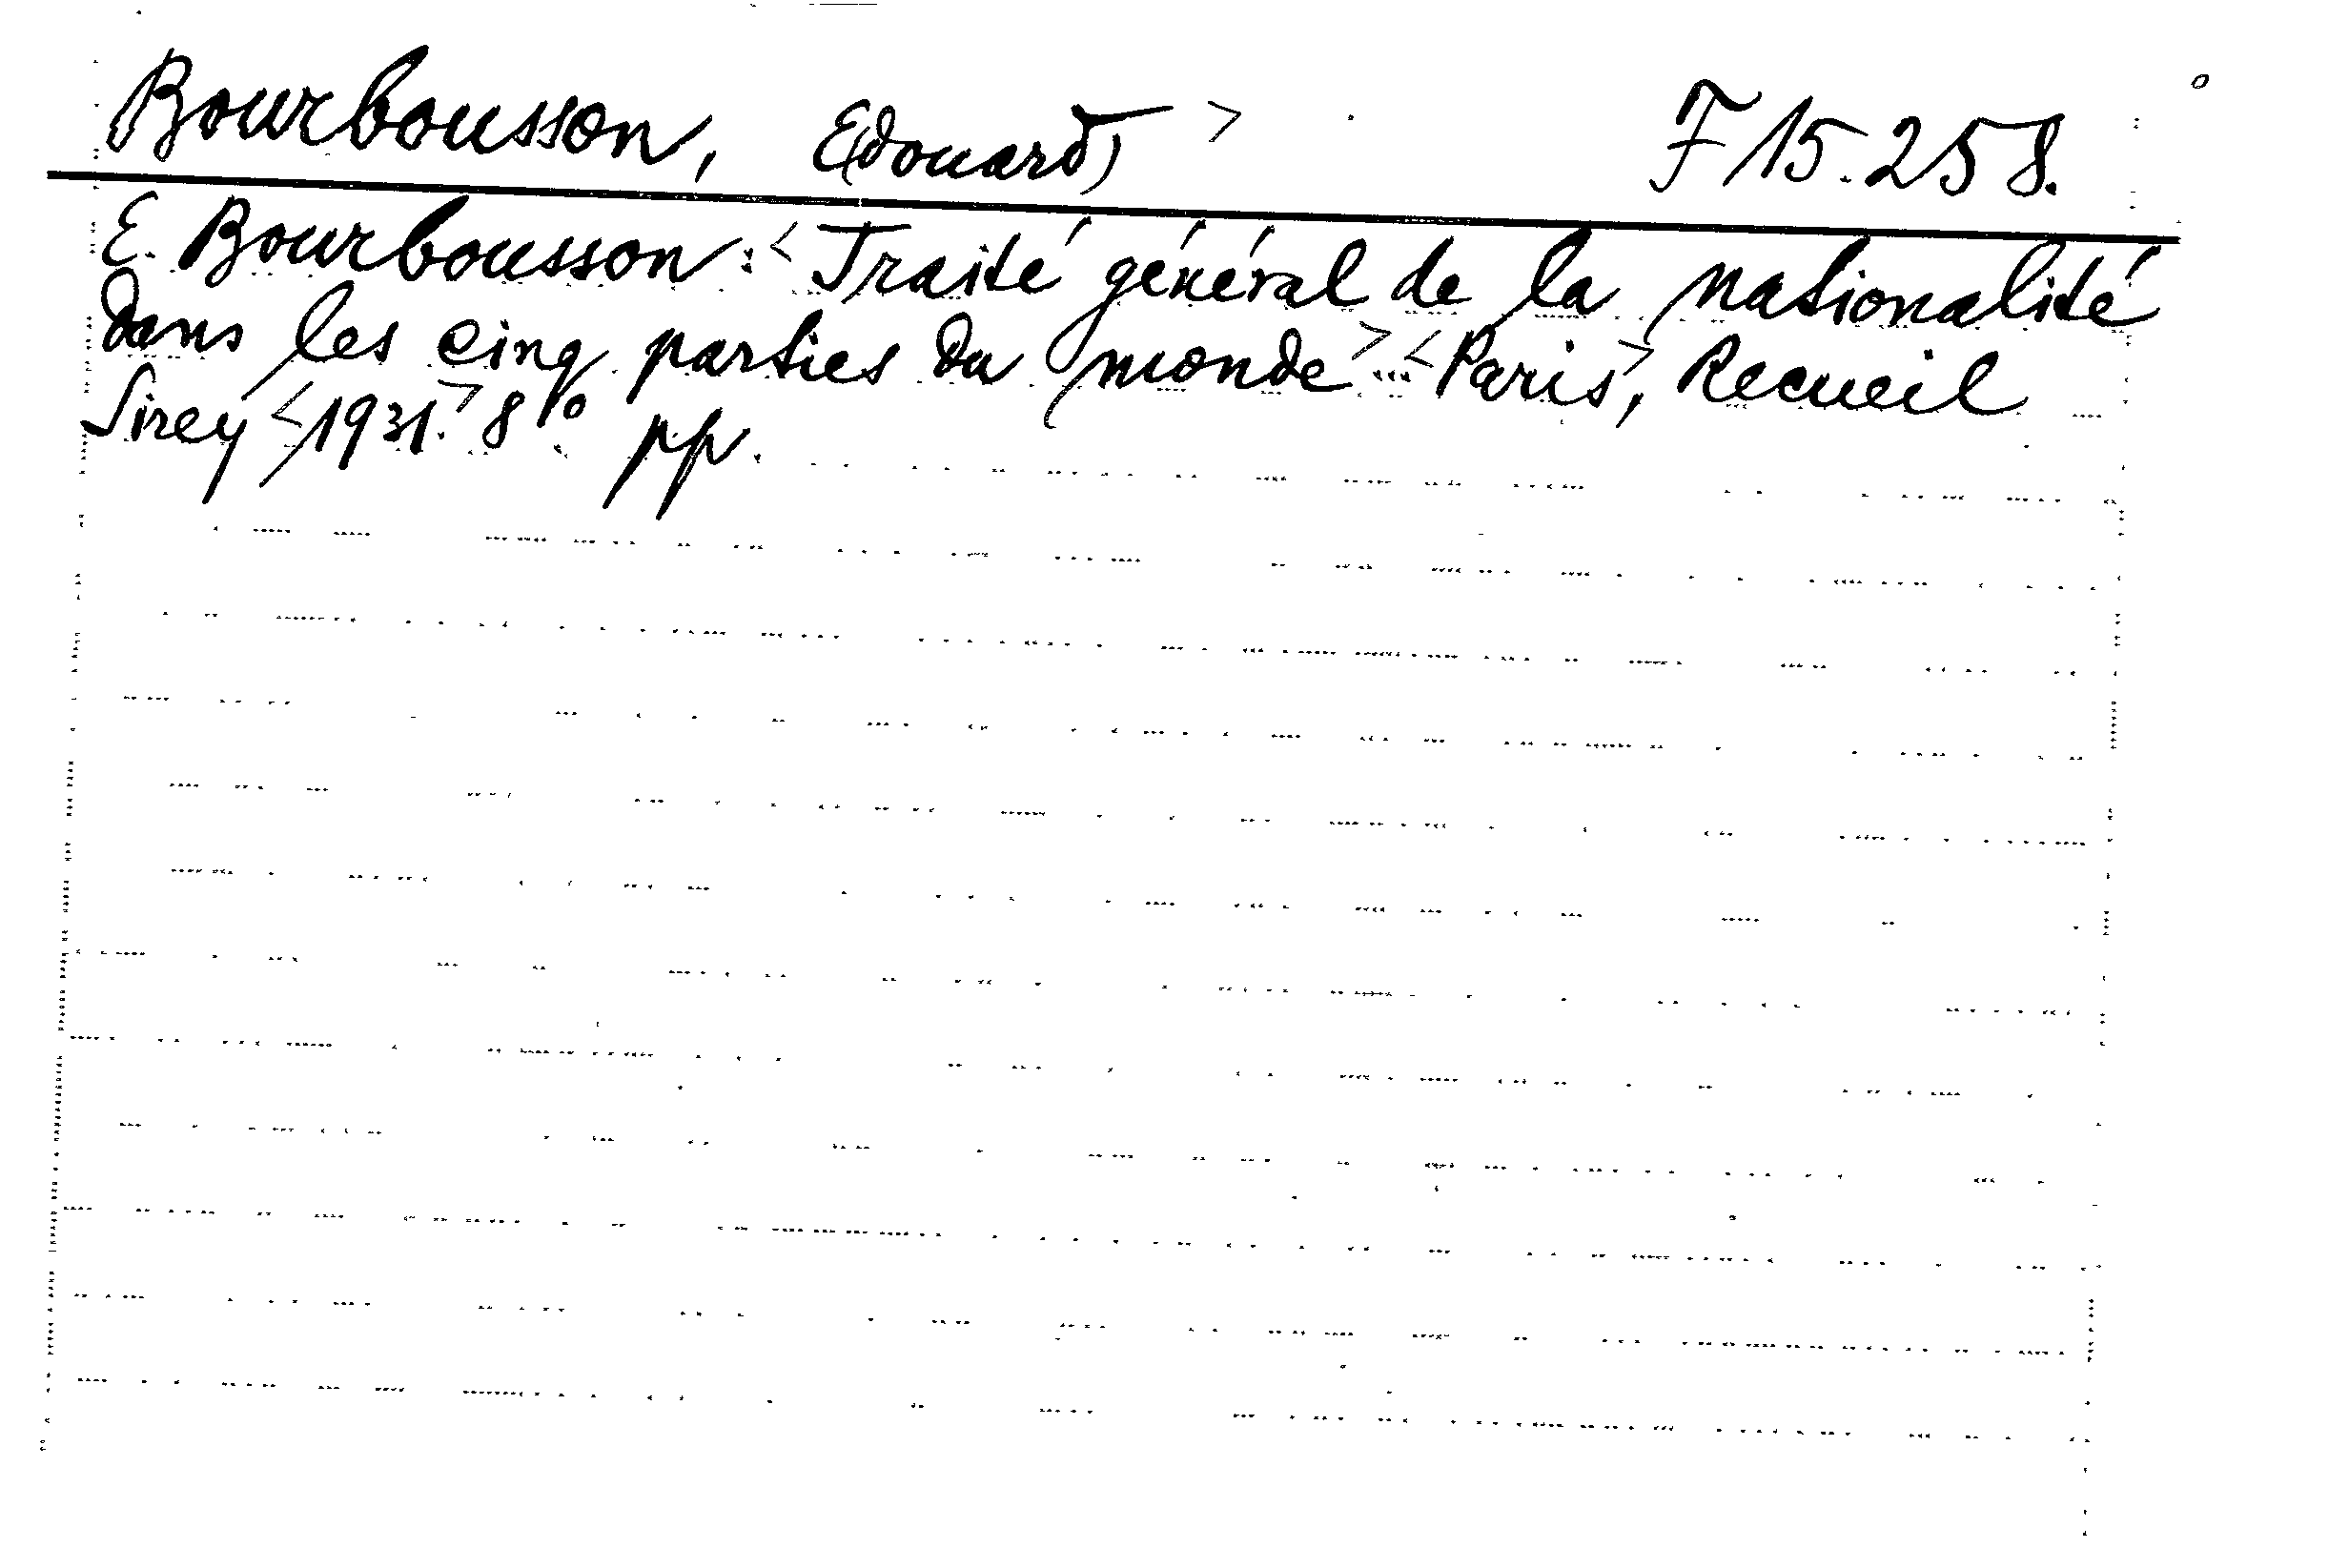 Bourbousson, E(douard) > F 15.258.
E. Bourbousson: < Traité général de la nationalité
dans les cinq parties du monde > < Paris >, Recueil
Sirey < 1931. > 8° pp.